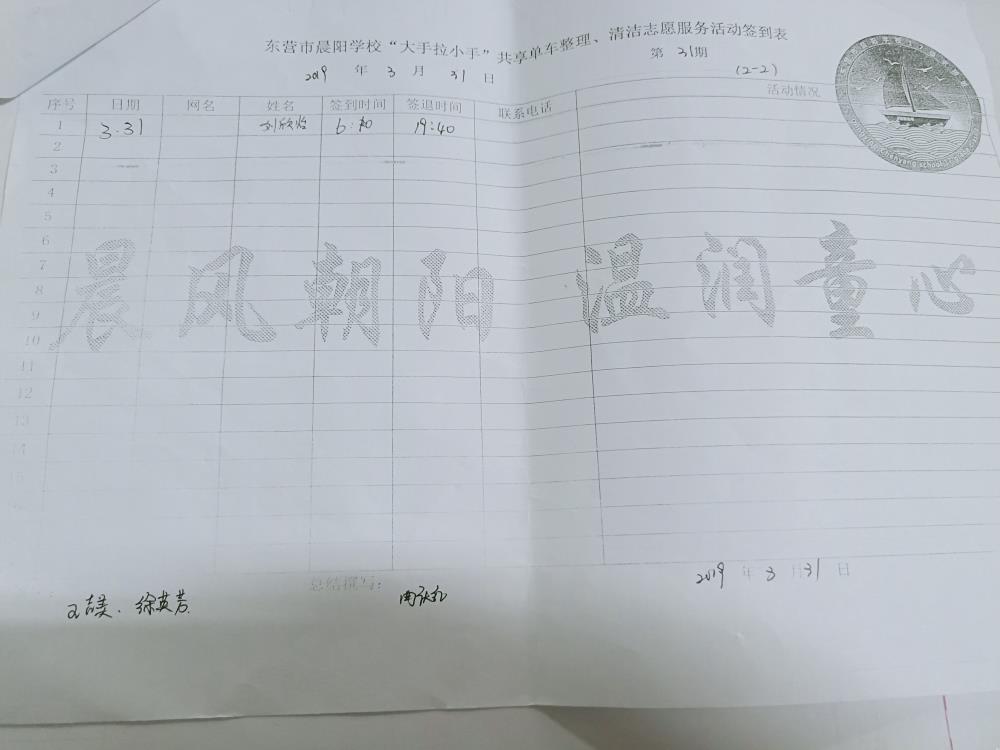 东营市晨阳学校“大手拉小手”共享单车整理、清洁志愿服务活动签到表
2019 年 3 月 31 日 第 31期
(2-2)
序号 日期 网名 姓名 签到时间 签退时间 联系电话 活动情况
1 3.31 刘欣怡 19:40
2
3
4
5
6
7
8
9
10
11
12
13
14
15
晨风朝阳 温润童心
总结撰写:
2019 年 3 月 31 日
徐英芳